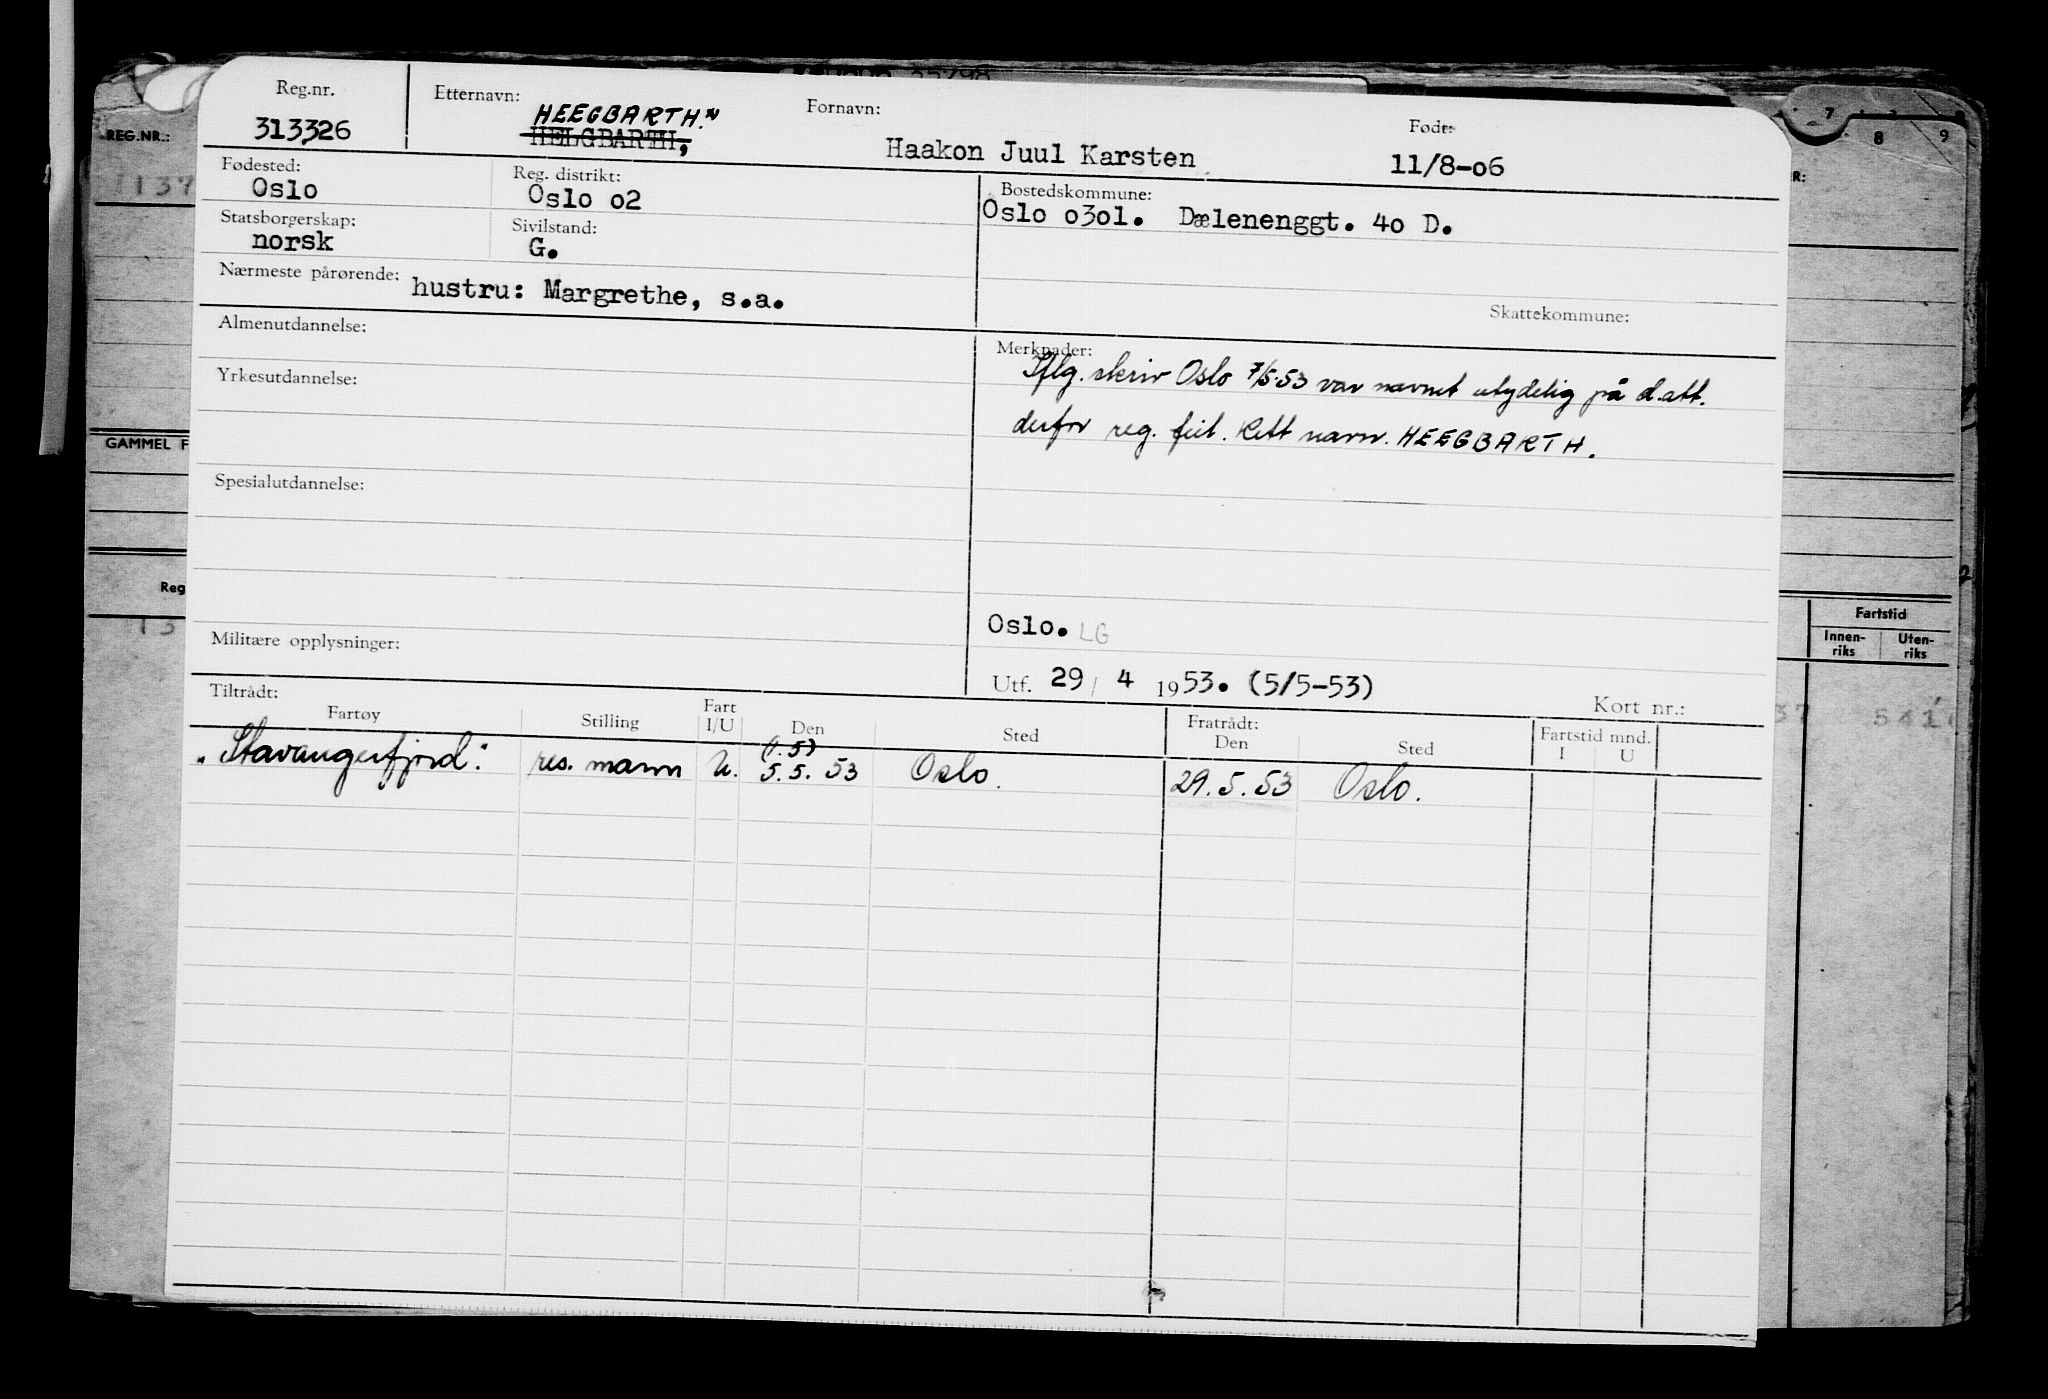 REG.NR.:
7 8 9
Reg.nr. Etternavn: Fornavn: Født:
HEEGBARTH.
313326 HELGBARTH, Haakon Juul Karsten 11/8-06
Fødested: Reg. distrikt: Bostedskommune:
Oslo Oslo o2 Oslo o3ol. Dælenenggt. 4o D.
Statsborgerskap: Sivilstand:
norsk G.
Nærmeste pårørende: hustru: Margrethe, s.a.
Skattekommune:
Almenutdannelse: Merknader:
Iflg. skriv Oslo 7/5-53 var navnet utydelig på d.att.
Yrkesutdannelse:
derfor reg. feil. Rett navn. HEEGBARTH.
GAMMEL F
Spesialutdannelse:
Reg
Oslo. LG
Militære opplysninger:
Utf. 29 / 4 1953. (5/5-53)
Fartstid
Innen-riks Uten-riks
Tiltrådt: Kort nr.:
Fartøy Stilling Fart I/U Den Sted Fratrådt: Den Sted Fartstid mnd. I U
(1.5)
"Stavangerfjord". res. mann U. 5.5. 53 Oslo. 29.5.53 Oslo.
541